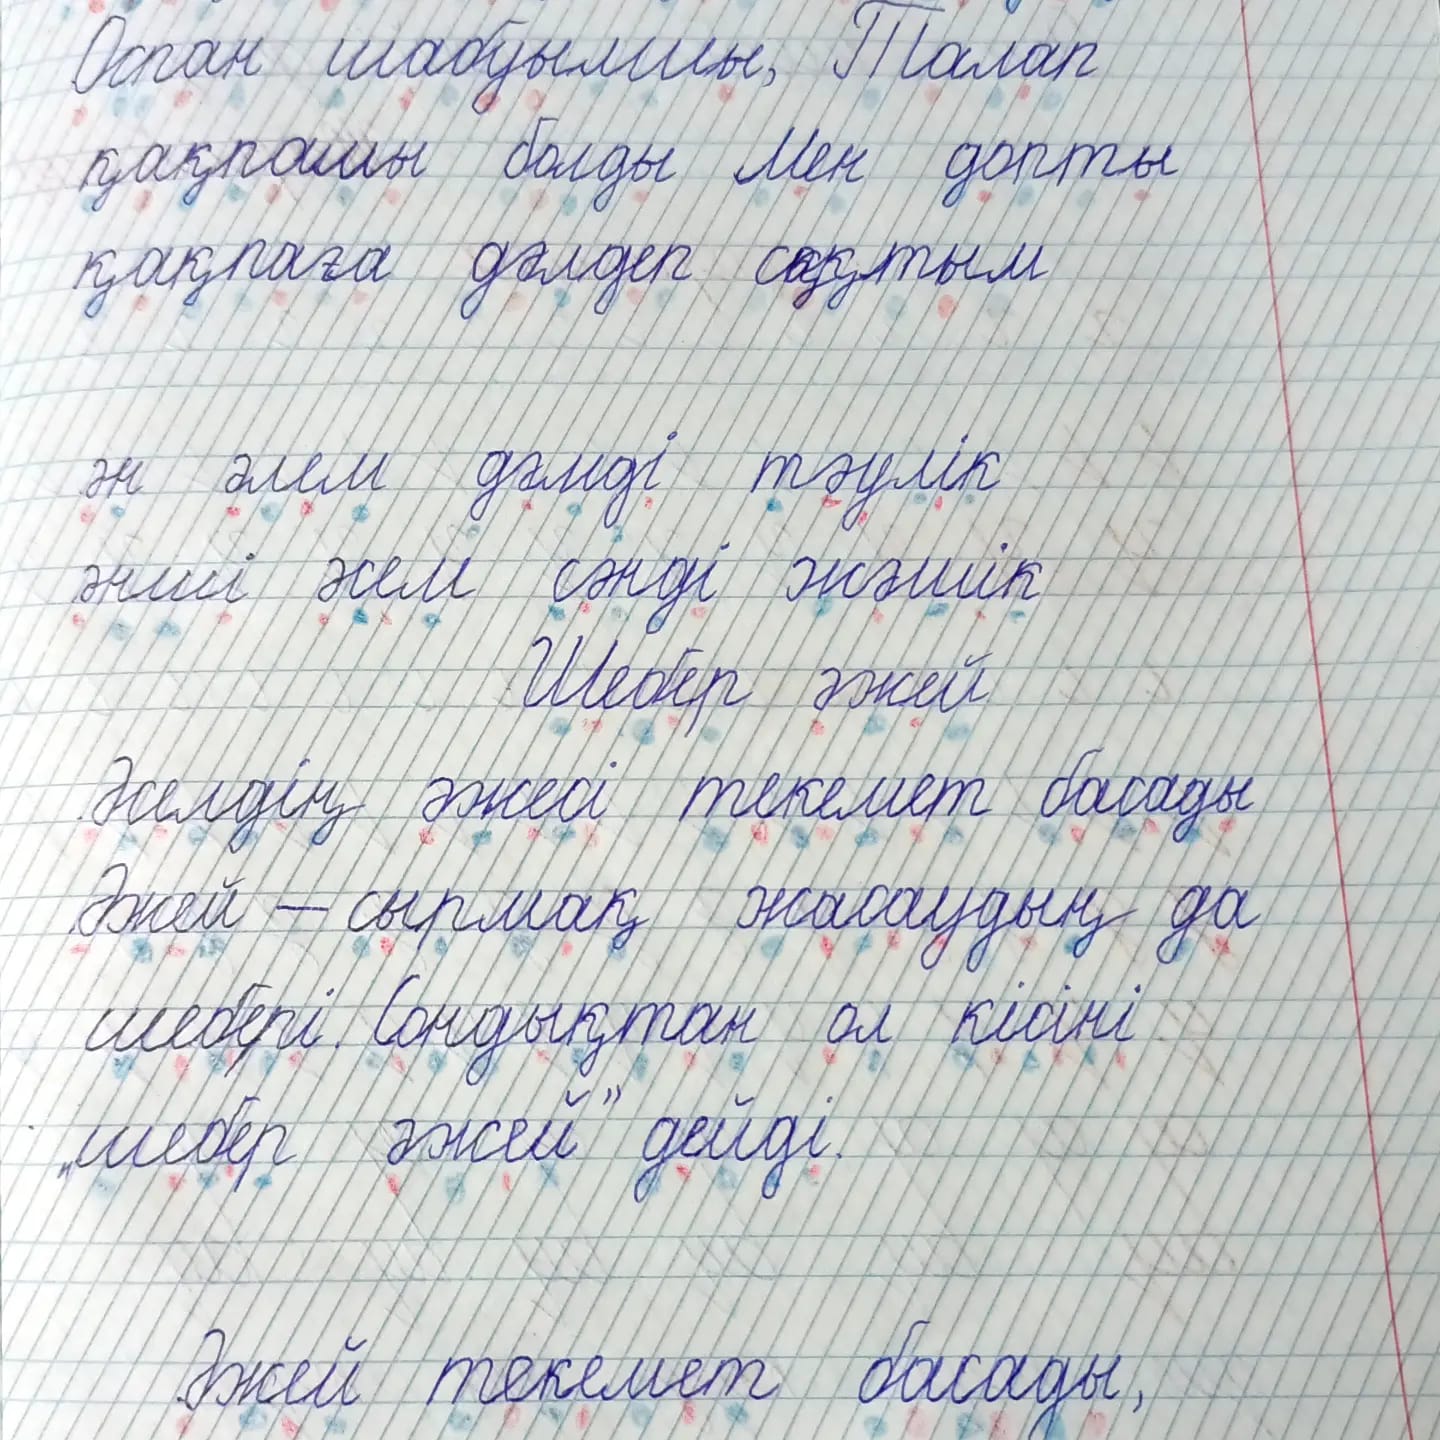 Оспан шабуылшы, Талап
қақпашы болды Мен допты
қақпаға дәлдеп соқтым
ән әлем дәмді тәулік
әнші әсем сәнді жәшік
Шебер әжей
Әселдің әжесі текемет басады
Әжей – сырмақ жасаудың да
шебері. Сондықтан ол кісіні
„шебер әжей” дейді.
Әжей текемет басады,